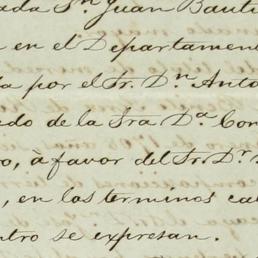 ada Sn. Juan Bauti
en el Departament
a por el Sr. Dn. Anto
do de la Sra Da. Con
o, à favor del Sr. Dr.
, en los terminos ca
ntro se expresan.